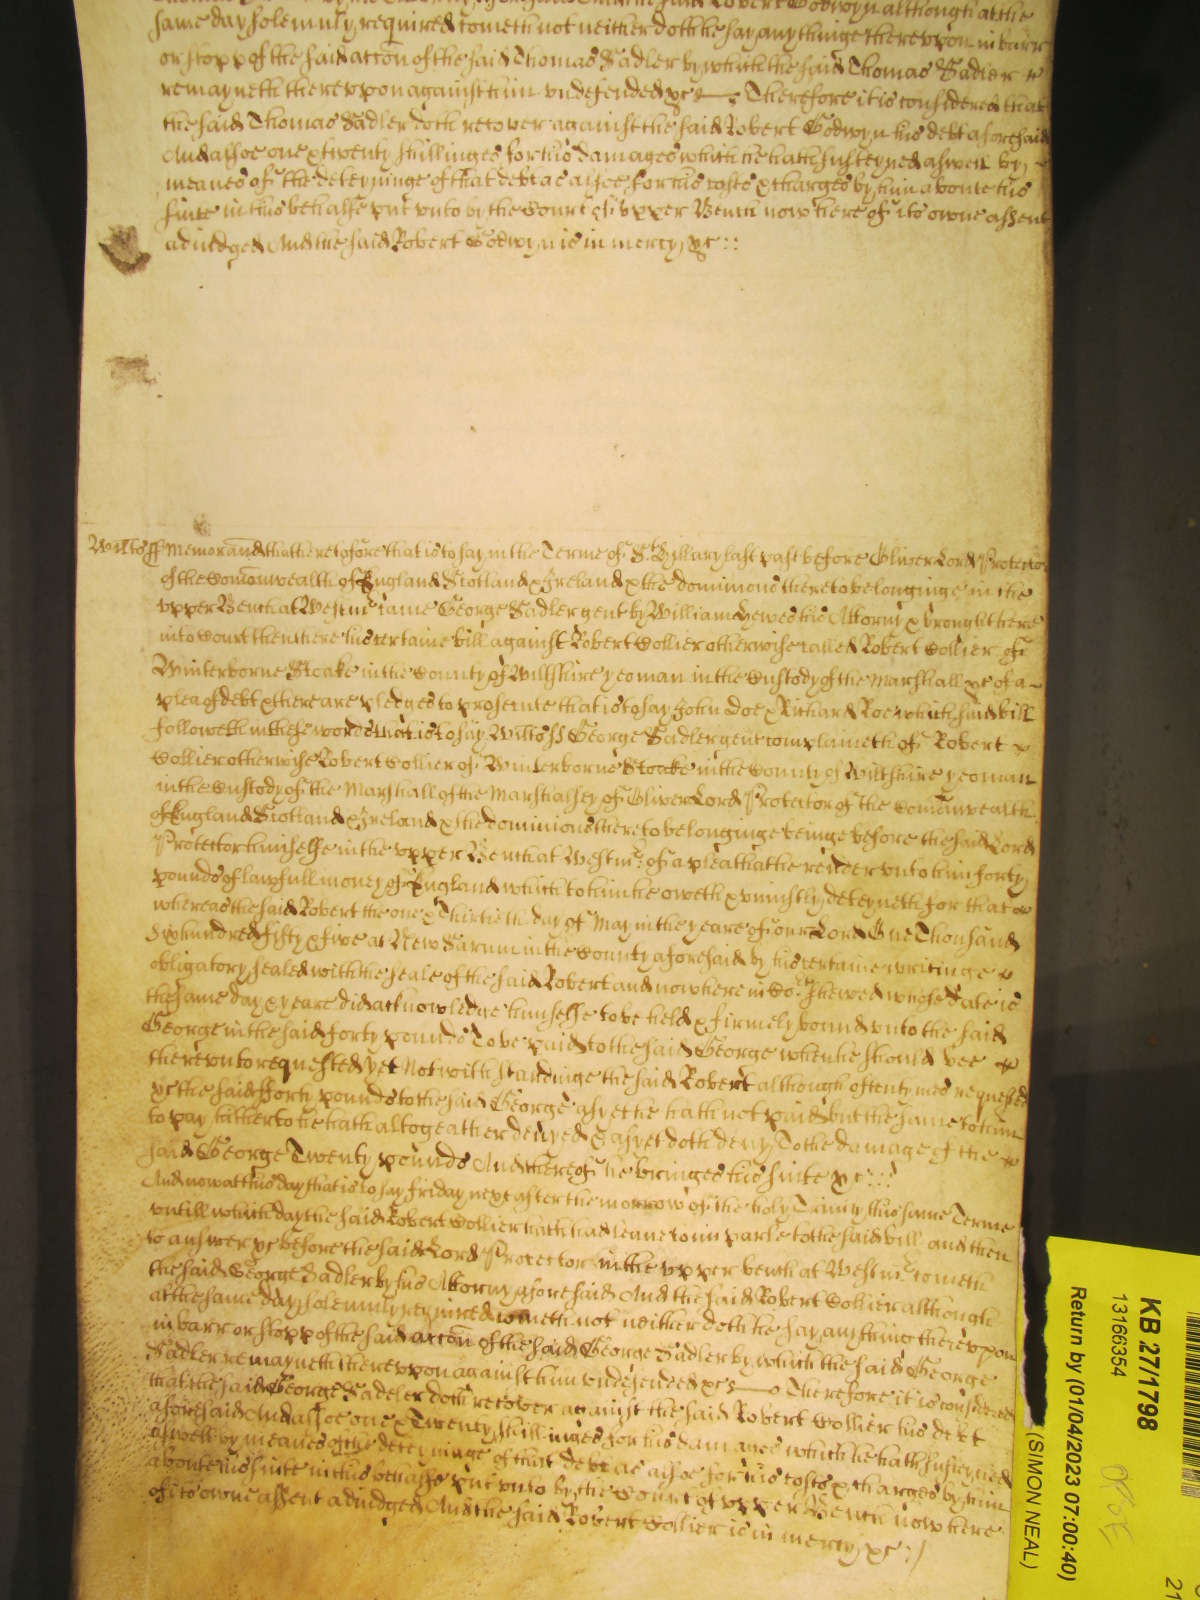 said Robert Godwyn although att the
same day solemnly required cometh not neither doth he say any thinge thereupon in barr
or stopp of the said acc͠on of the said Thomas Sadler by which the said Thomas Sadler
remayneth thereuppon against him undefended &c Therefore it is considered that
the said Thomas Sadler doth recover against the said Robert Godwyn his debt aforesaid
And alsoe one & twenty shillinges for his damages which he hath susteyned aswell by
meanes of the deteyninge of that debt as alsoe for his costs & charges by him aboute his
suite in this behalfe put unto by the Court of Upper Bench now here of its owne assent
adiudged And the said Robert Godwyn is in mercy &c ::
Wiltes ss Memorand that heretofore that is to say in the Terme of St Hyllary last past before Oliver Lord Protector
of the Com͠onwealth of England Scotland & Ireland & the dominions thereto belonginge in the
upper Bench at Westmr came George Sadler gent by William Hewes his Attorny & brought here
into Court then there his certaine bill against Robert Collier otherwise called Robert Collier of
Winterborne Stoake in the County of Wiltshire yeoman in the Custody of the Marshall &c of a
plea of debt & there are pledges to prosecute that is to say John Doe & Richard Roe which said bill
followeth in these words that is to say Wiltes ss George Sadler gent complaineth of Robert
Collier otherwise Robert Collier of Winterborne Stoake in the County of Wiltshire yeoman
in the Custody of the Marshall of the Marshalsey of Oliver Lord Protector of the Com͠onwealth
of England Scotland & Ireland & the dominions thereto belonginge beinge before the said Lord
Protector himselfe in the upper Bench at Westmr of a plea that he render unto him forty
pounds of lawfull money of England which to him he oweth & uniustly deteyneth for that
whereas the said Robert the one & Thirtieth day of May in the yeare of our Lord One Thousand
Six hundred fifty & five at New Sarum in the County aforesaid by his certaine writinge
obligatory sealed with the seale of the said Robert and now here in Cort shewed whose date is
the same day & yeare did acknowledge himselfe to be held & firmely bound unto the said
George in the said forty pounds To be paid to the said George when he should bee
thereunto requested yet Notwithstandinge the said Robert although oftentymes requested
&c the said fforty pounds to the said George as yet he hath not paid but the same to him
to pay hitherto he hath altogeather denyed & as yet doth deny To the damage of the
said George Twenty pounds And thereof he bringes his suite &c ::
And now att this day that is to say friday next after the morrow of the holy Trinity this same Terme
untill which day the said Robert Collier hath had leave to imparle to the said bill and then
to answer &c before the said Lord Protector in the upper bench at Westmr cometh
the said George Sadler by his Attorny aforesaid And the said Robert Collier although
at the same day solemnly required cometh not neither doth he say any thing thereupon
in barr or stopp of the said acc͠on of the said George Sadler by which the said George
Sadler remayneth thereuppon against him undefended &c Therefore it is considered
that the said George Sadeler doth recover against the said Robert Collier his debt
aforesaid And alsoe one & Twenty shillinges for his damages which he hath susteyned
aswell by meanes of the deteyninge of that debt as alsoe for his costs & charges by him
aboute his suite in this behalfe put unto by the Court of upper Bench now here
of its owne assent adiudged And the said Robert Collier is in mercy &c :
KB 27/1798
13166354
Return by (01/04/2023 07:00:40)
(SIMON NEAL)
21